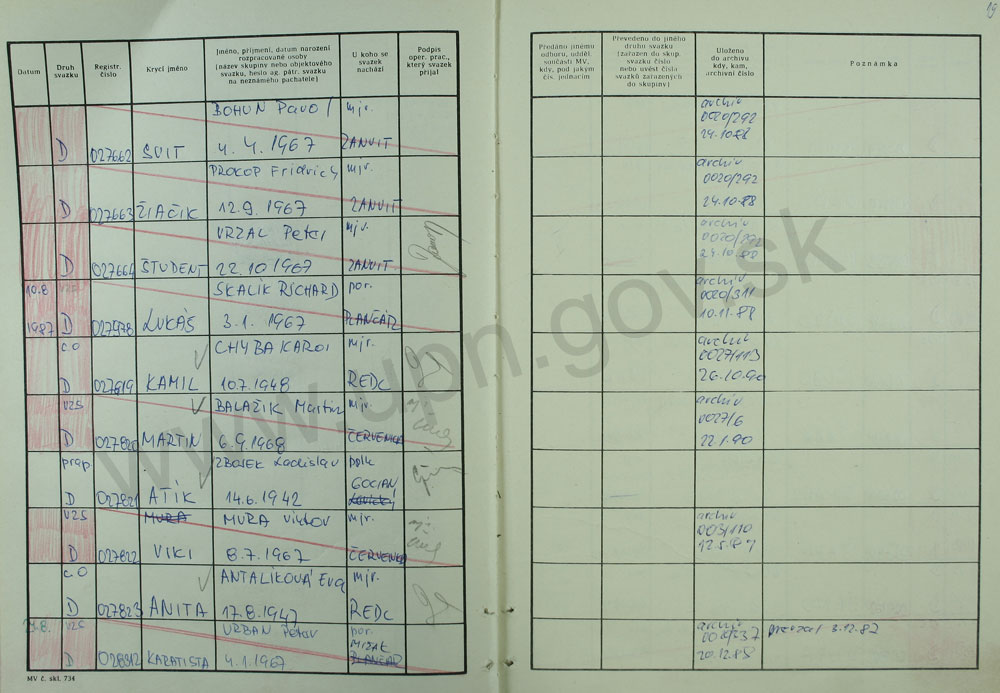 19
Datum
Druh svazku
Registr. číslo
Krycí jméno
Jméno, příjmení, datum narození
rozpracované osoby
(název skupiny nebo objektového
svazku, heslo ag. pátr. svazku
na neznámého pachatele)
U koho se
svazek
nachází
Podpis
oper. prac.,
který svazek
přijal
Předáno jinému
odboru, udděl.
součásti MV,
kdy, pod jakým
čís. jednacím
Převedeno do jiného
druhu svazku
(zařazen do skup.
svazku číslo
nebo uvést čísla
svazků zařazených
do skupiny)
Uloženo
do archivu
kdy, kam,
archivní číslo
Poznámka
BOHUN Pavol mjr. archiv
0020/292
D 027662 SVIT 4. 4. 1967 ZANVIT 24.10.88
PROKOP Fridrich mjr. archiv
0020/292
D 027663 ŽIAČIK 12.9. 1967 ZANVIT 24.10.88
VRZAL Peter mjr. archiv
0020/292
D 027664 ŠTUDENT 22.10 1967 ZANVIT 24.10.88
10.8 VZS SKALÍK RICHARD por. archiv
0020/311
1987 D 027978 LUKÁŠ 3.1. 1967 PLANČÁR 10.11.88
c.O CHYBA KAROL mjr. archiv
0027/113
D 027819 KAMIL 10.7.1948 REDC 26.10.90
VZS BALAŽIK Martin mjr. archiv
0027/6
D 027820 MARTIN 6.9.1968 ČERVENKA 22.1.90
prap. ZBOJEK Ladislav pplk
GOCIAN
D 027821 ATÍK 14.6.1942
VZS MURA MURA Viktor mjr. archiv
D 027822 VIKI 8.7.1967 ČERVENKA
c.O ANTALÍKOVÁ Eva mjr.
D 027823 ANITA 17.8.1947 REDC
VZS URBAN Peter por. archiv prevzal 3.12.87
MIZAK
D KARATISTA 4.1.1967 PLANČAR 20.12.88
MV č. skl. 734
www.upn.gov.sk